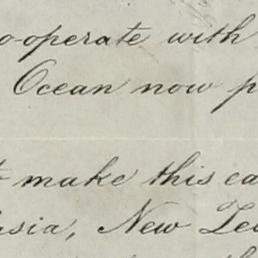 o-operate with
Ocean now p
t make this ca
sia, New Zea